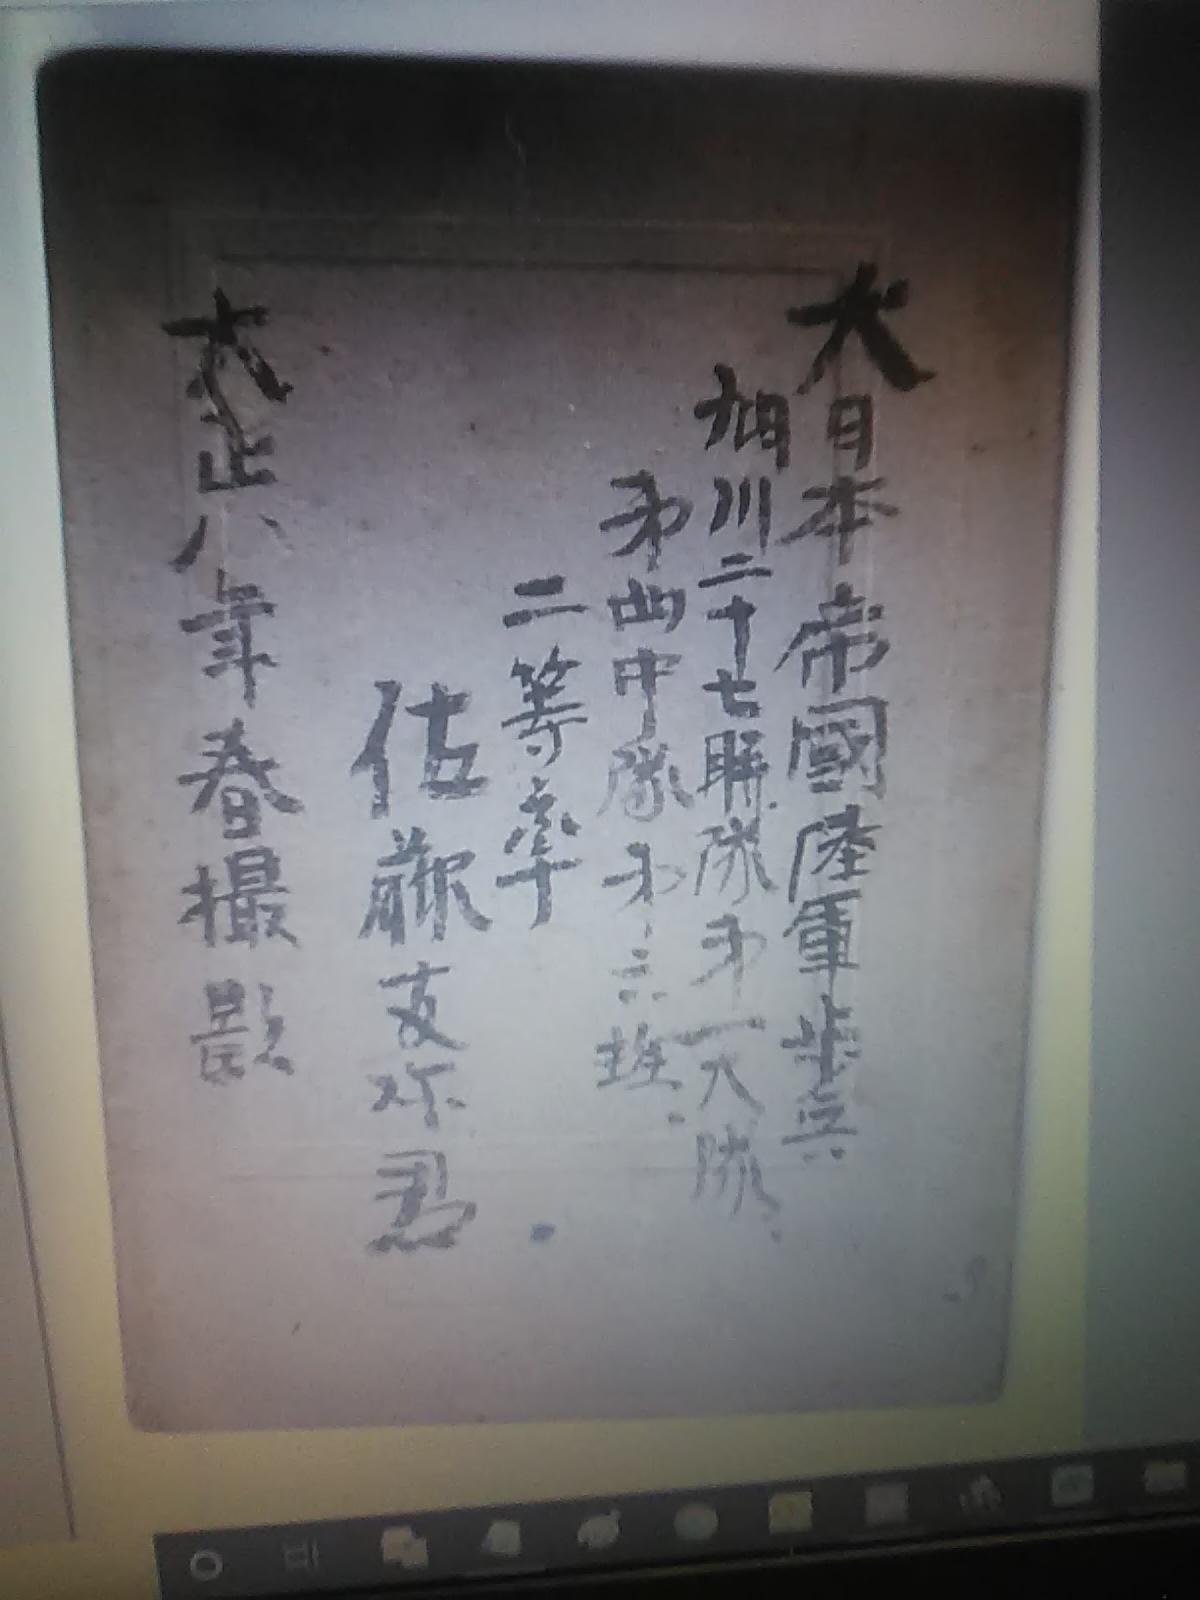 大日本帝國陸軍歩兵
旭川二十七聯隊第一大隊、
第四中隊第三班、
二等卒
佐藤友弥君
大正八年春撮影